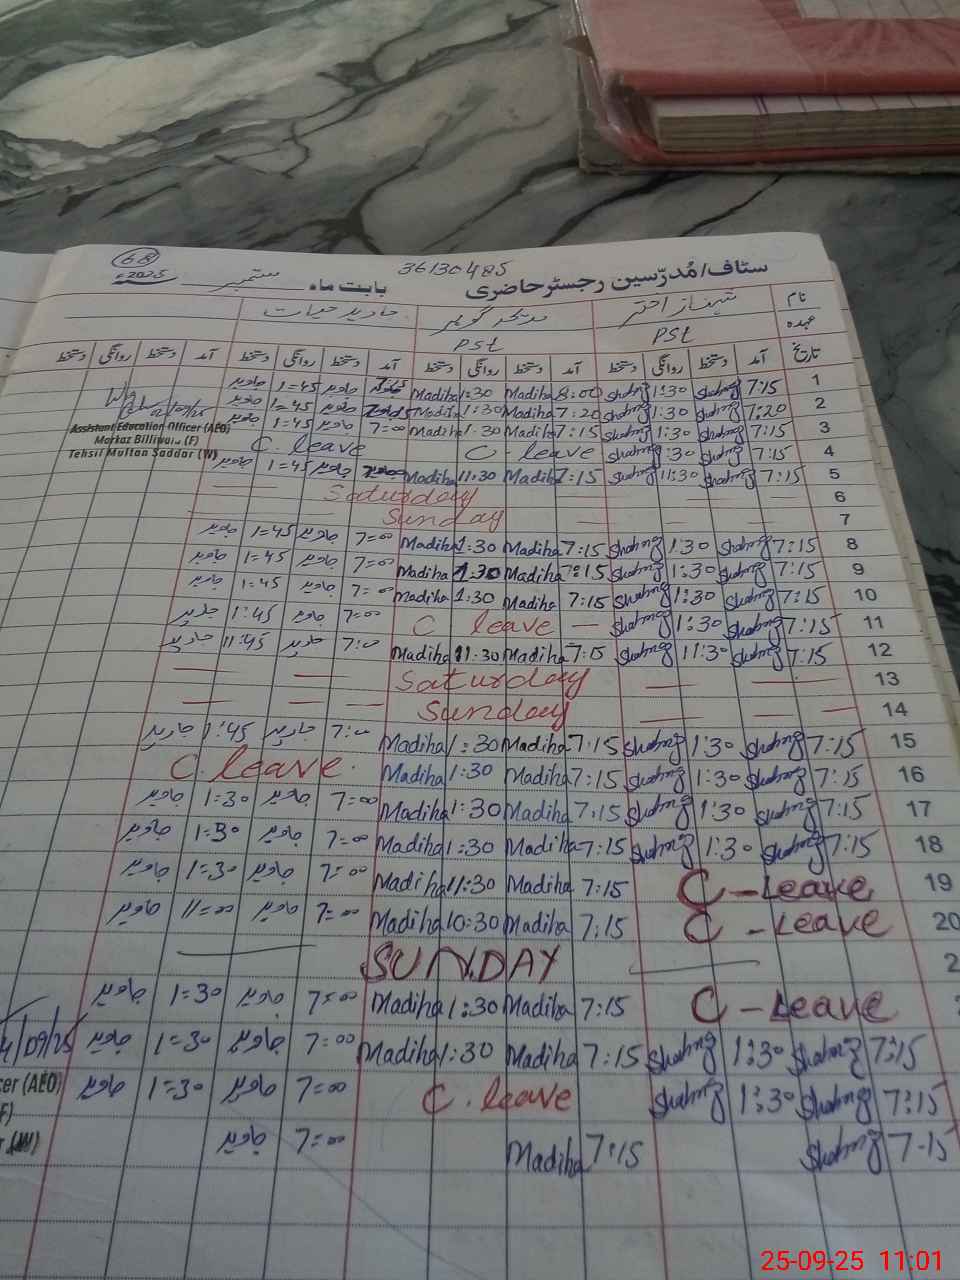 68
2025ء
36130485
سٹاف/مُدرّسین رجسٹر حاضری بابت ماہ ستمبر
نام شہناز اختر مدیحہ گوہر جاوید حیات
عہدہ PST PST
تاریخ آمد دستخط روانگی دستخط آمد دستخط روانگی دستخط آمد دستخط روانگی دستخط آمد دستخط روانگی دستخط
1 7:15 1:30 8:00 Madiha 1:30 Madiha جاوید 1=45 جاوید
2 7:20 1:30 7:20 Madiha 1:30 Madiha جاوید 1=45 جاوید
3 7:15 1:30 7:15 Madiha 1:30 Madiha 7=00 جاوید 1=45 جاوید
4 7:15 1:30 C - leave C. leave
5 7:15 11:30 7:15 Madiha 11:30 Madiha جاوید 1=45 جاوید
6 Saturday
7 Sunday
8 7:15 1:30 7:15 Madiha 1:30 Madiha 7=00 جاوید 1=45 جاوید
9 7:15 1:30 7:15 Madiha 1:30 Madiha 7=00 جاوید 1=45 جاوید
10 7:15 1:30 7:15 Madiha 1:30 Madiha 7=00 جاوید 1=45 جاوید
11 7:15 1:30 C leave 7=00 جاوید 1:45 جاوید
12 7:15 11:30 7:15 Madiha 11:30 Madiha 7:00 جاوید 11:45 جاوید
13 Saturday
14 Sunday
15 7:15 1:30 7:15 Madiha 1:30 Madiha 7:00 جاوید 1:45 جاوید
16 7:15 1:30 7:15 Madiha 1:30 Madiha C. leave.
17 7:15 1:30 7:15 Madiha 1:30 Madiha 7=00 جاوید 1=30 جاوید
18 7:15 1:30 7:15 Madiha 1:30 Madiha 7=00 جاوید 1=30 جاوید
19 C - Leave 7:15 Madiha 11:30 Madiha 7=00 جاوید 1=30 جاوید
20 C - Leave 7:15 Madiha 10:30 Madiha 7=00 جاوید 11=00 جاوید
2 SUNDAY
C - Leave 7:15 Madiha 1:30 Madiha 7=00 جاوید 1=30 جاوید
7:15 1:30 7:15 Madiha 1:30 Madiha 7=00 جاوید 1=30 جاوید
7:15 1:30 C. leave 7=00 جاوید 1=30 جاوید
7-15 7:15 Madiha 7=00 جاوید
Assistant Education Officer (AEO)
Markaz Billiwala (F)
Tehsil Multan Saddar (W)
/09/25
cer (AEO)
F)
r (W)
25-09-25 11:01